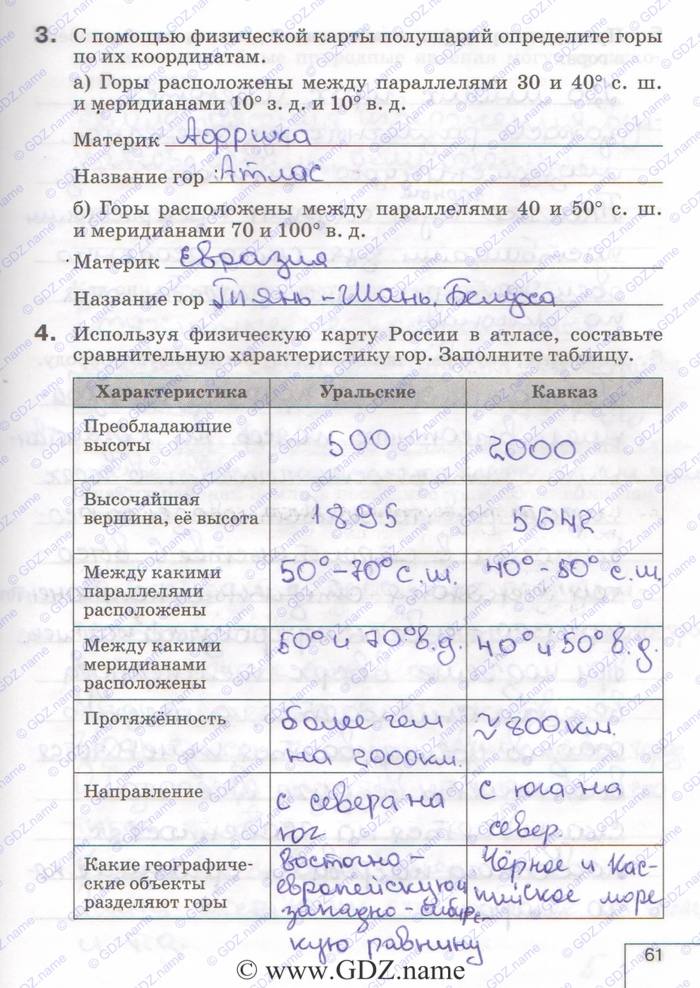 3. С помощью физической карты полушарий определите горы
по их координатам.
а) Горы расположены между параллелями 30 и 40° с. ш.
и меридианами 10° з. д. и 10° в. д.
Материк Африка
Название гор Атлас
б) Горы расположены между параллелями 40 и 50° с. ш.
и меридианами 70 и 100° в. д.
Материк Евразия
Название гор Тянь-Шань, Белуха
4. Используя физическую карту России в атласе, составьте
сравнительную характеристику гор. Заполните таблицу.
Характеристика Уральские Кавказ
Преобладающие
высоты 500 2000
Высочайшая
вершина, её высота 1895 5642
Между какими
параллелями
расположены 50°-70° с.ш. 40°-50° с.ш.
Между какими
меридианами
расположены 50° и 70° в.д. 40° и 50° в.д.
Протяжённость более чем ≈ 800 км.
на 2000 км.
Направление с севера на с юга на
юг север.
Какие географиче-
ские объекты
разделяют горы
восточно-
европейскую
западно-сибирс-
кую равнину
Чёрное и Кас-
пийское море
61
© www.GDZ.name